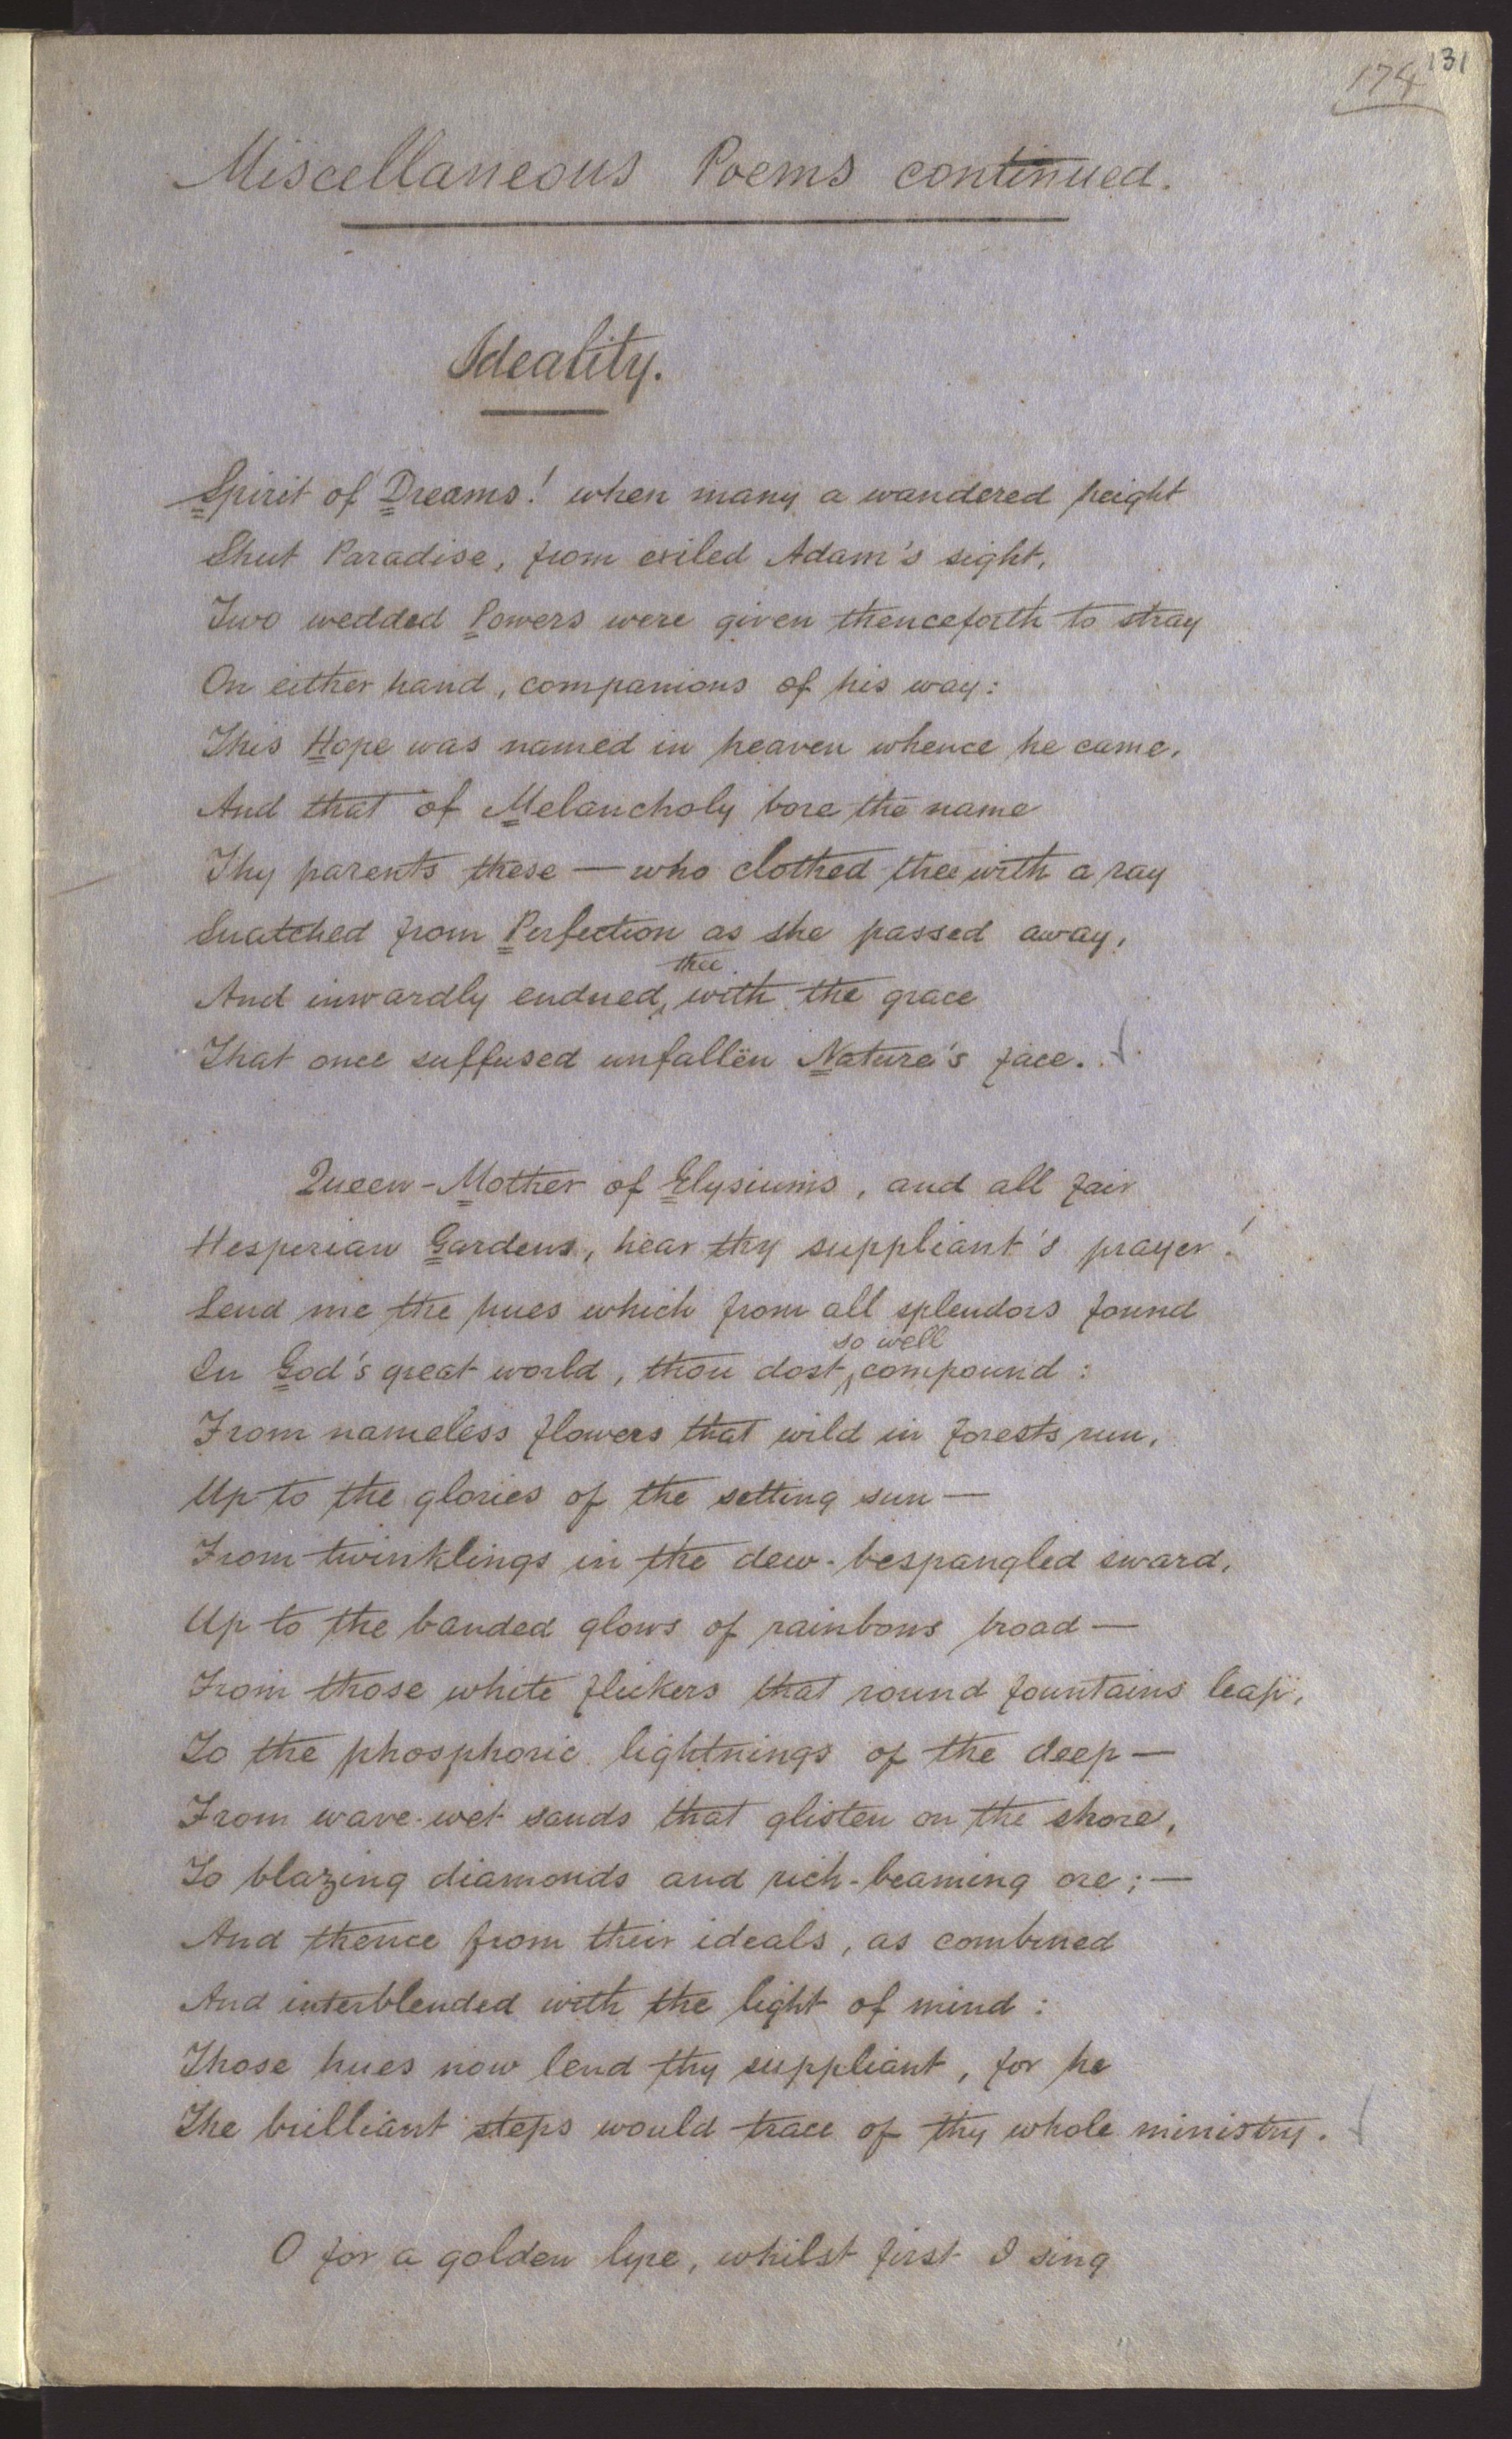 131
174
Miscellaneous Poems continued.
Ideality.
Spirit of Dreams! when many a wandered height
Shut Paradise, from exiled Adam's sight,
Two wedded Powers were given thenceforth to stray
On either hand, companions of his way:
This Hope was named in heaven whence he came,
And that of Melancholy bore the name
Thy parents these — who clothed thee with a ray
Snatched from Perfection as she passed away,
thee
And inwardly endued, with the grace
That once suffused unfallën Nature's face.
Queen-Mother of Elysiums, and all fair
Hesperian Gardens, hear thy suppliant's prayer!
Lend me the hues which from all splendors found
so well
In God's great world, thou dost compound:
From nameless flowers that wild in forests run,
Up to the glories of the setting sun —
From twinklings in the dew-bespangled sward,
Up to the banded glows of rainbows broad —
From those white flickers that round fountains leap,
To the phosphoric lightnings of the deep —
From wave-wet sands that glisten on the shore,
To blazing diamonds and rich-beaming ore; —
And thence from their ideals, as combined
And interblended with the light of mind:
Those hues now lend thy suppliant, for he
The brilliant steps would trace of thy whole ministry.
O for a golden lyre, whilst first I sing